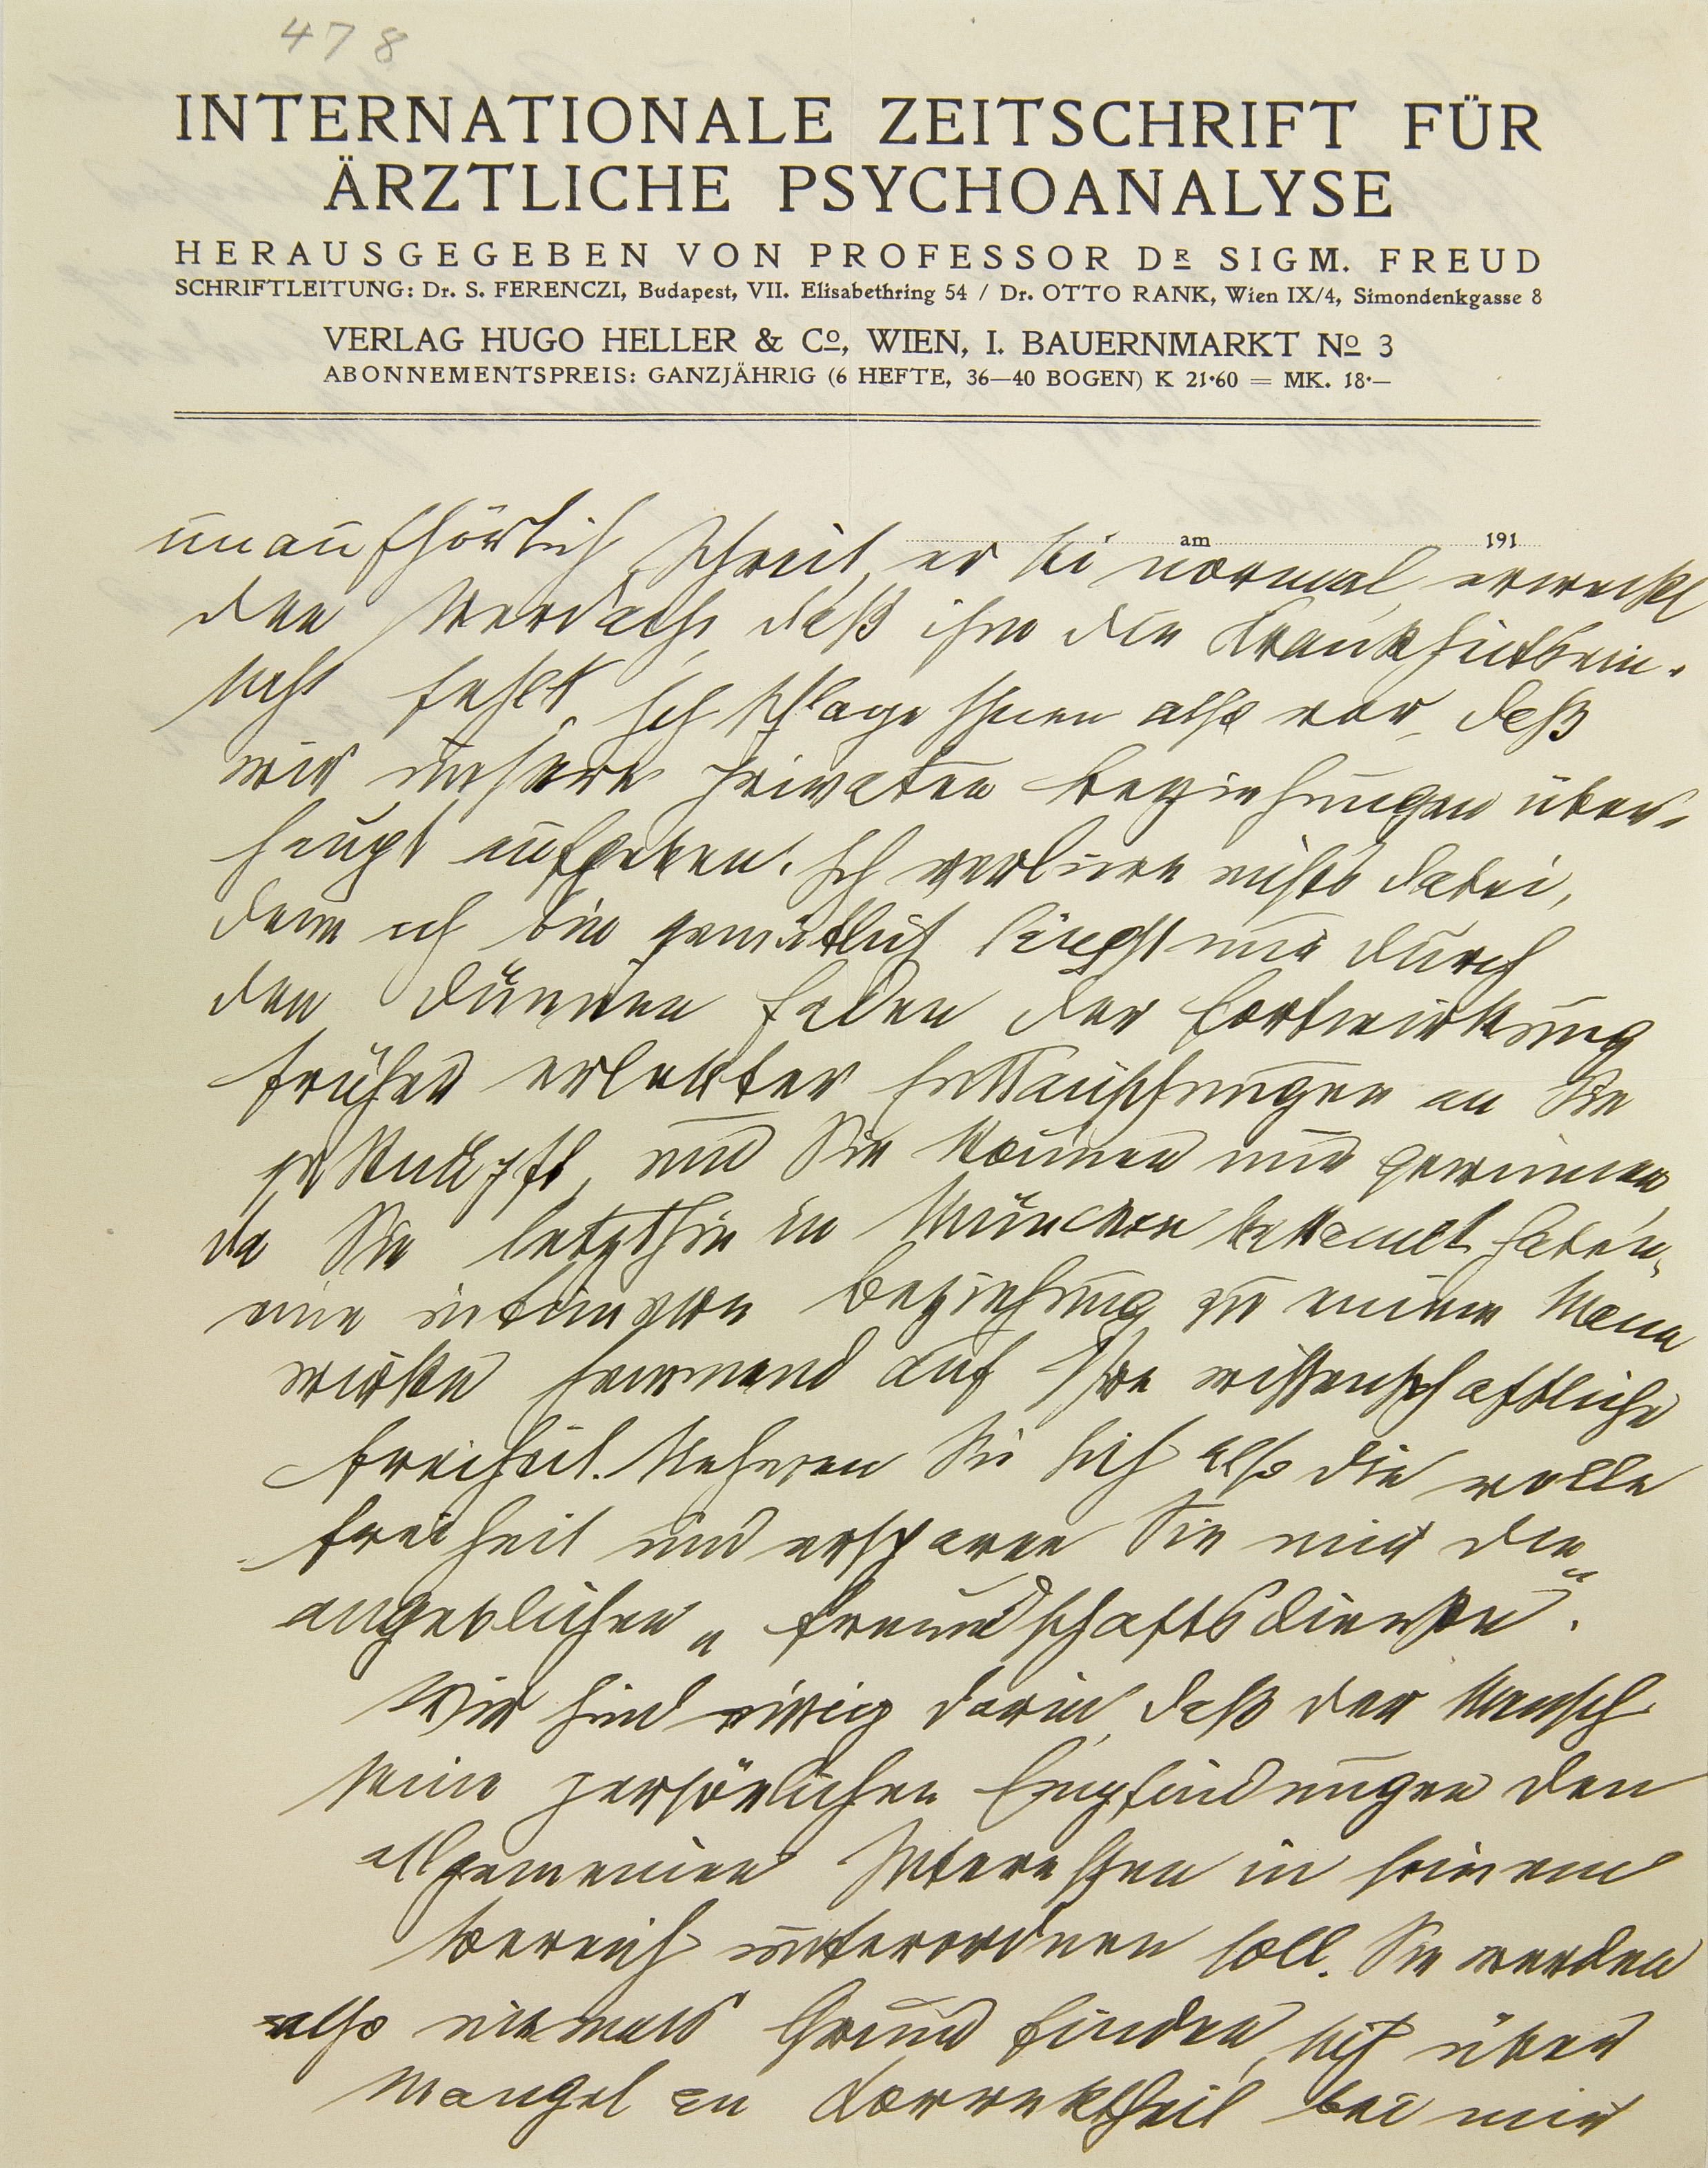 478
INTERNATIONALE ZEITSCHRIFT FÜR
ÄRZTLICHE PSYCHOANALYSE
HERAUSGEGEBEN VON PROFESSOR DR SIGM. FREUD
SCHRIFTLEITUNG: Dr. S. FERENCZI, Budapest, VII. Elisabethring 54 / Dr. OTTO RANK, Wien IX/4, Simondenkgasse 8
VERLAG HUGO HELLER & Co, WIEN, I. BAUERNMARKT No 3
ABONNEMENTSPREIS: GANZJÄHRIG (6 HEFTE, 36—40 BOGEN) K 21·60 = MK. 18·—
am 191
unaufhörlich schreit, er sei normal, erweckt
den Verdacht, daß ihm die Krankheitsein-
sicht fehlt. Ich schlage Ihnen also vor, daß
wir unsere privaten Beziehungen über-
haupt aufgeben. Ich verliere nichts dabei,
denn ich bin gemütlich längst nur durch
den dünnen Faden der Fortwirkung
früher erlebter Enttäuschungen an Sie
geknüpft, und Sie können nur gewinnen,
da Sie letzthin in München bekannt haben,
eine intimere Beziehung zu einem Mann
wirke hemmend auf Ihre wissenschaftliche
Freiheit. Nehmen Sie sich also die volle
Freiheit und ersparen Sie mir die
angeblichen „Freundschaftsdienste“.
Wir sind einig darin, daß der Mensch
seine persönlichen Empfindungen den
allgemeinen Interessen in seinem
Bereich unterordnen soll. Sie werden
also niemals Grund finden, sich über
Mangel an Korrektheit bei mir